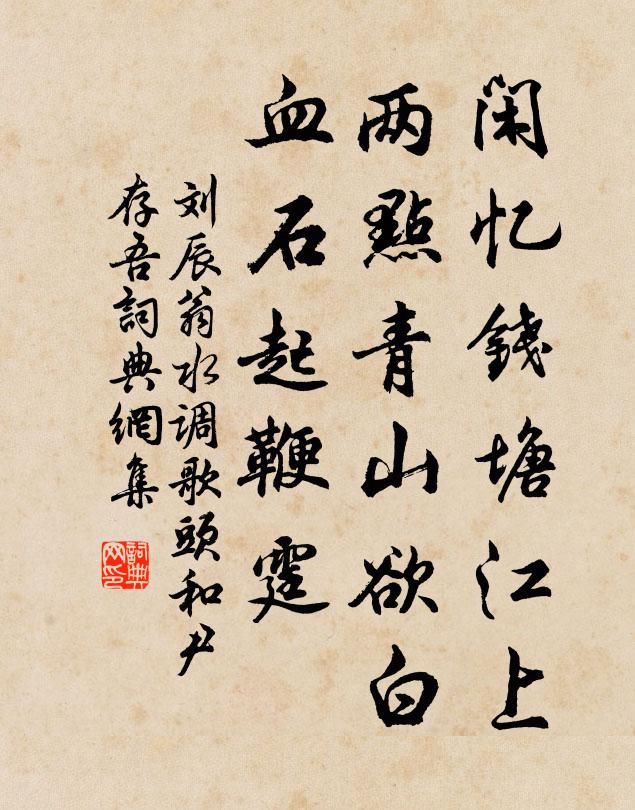 闲忆钱塘江上
两點青山欲白
血石起鞭霆
刘辰翁水调歌頭和尹
存吾詞典網集
詞典网印